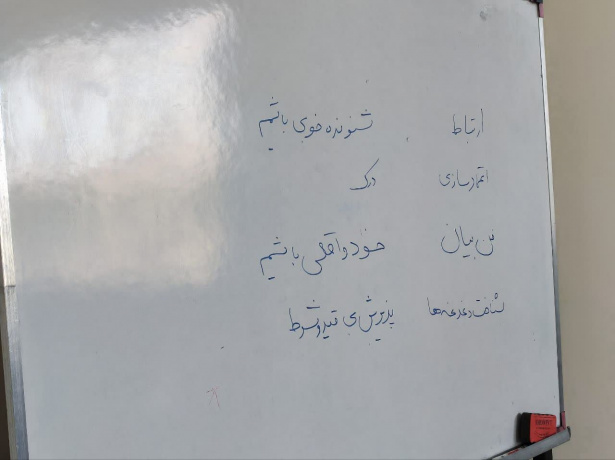 ارتباط شنونده خوبی باشیم
اعتمادسازی درک
فن بیان خود واقعی باشیم
شناخت دغدغه‌ها پذیرش بی قید و شرط